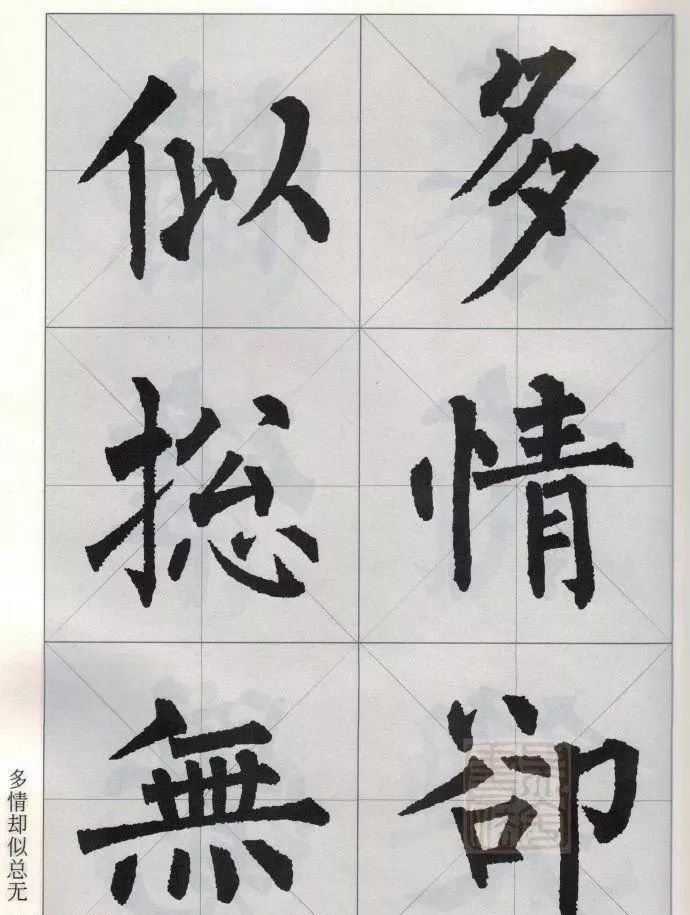 多情卻
似捴無
多情却似总无